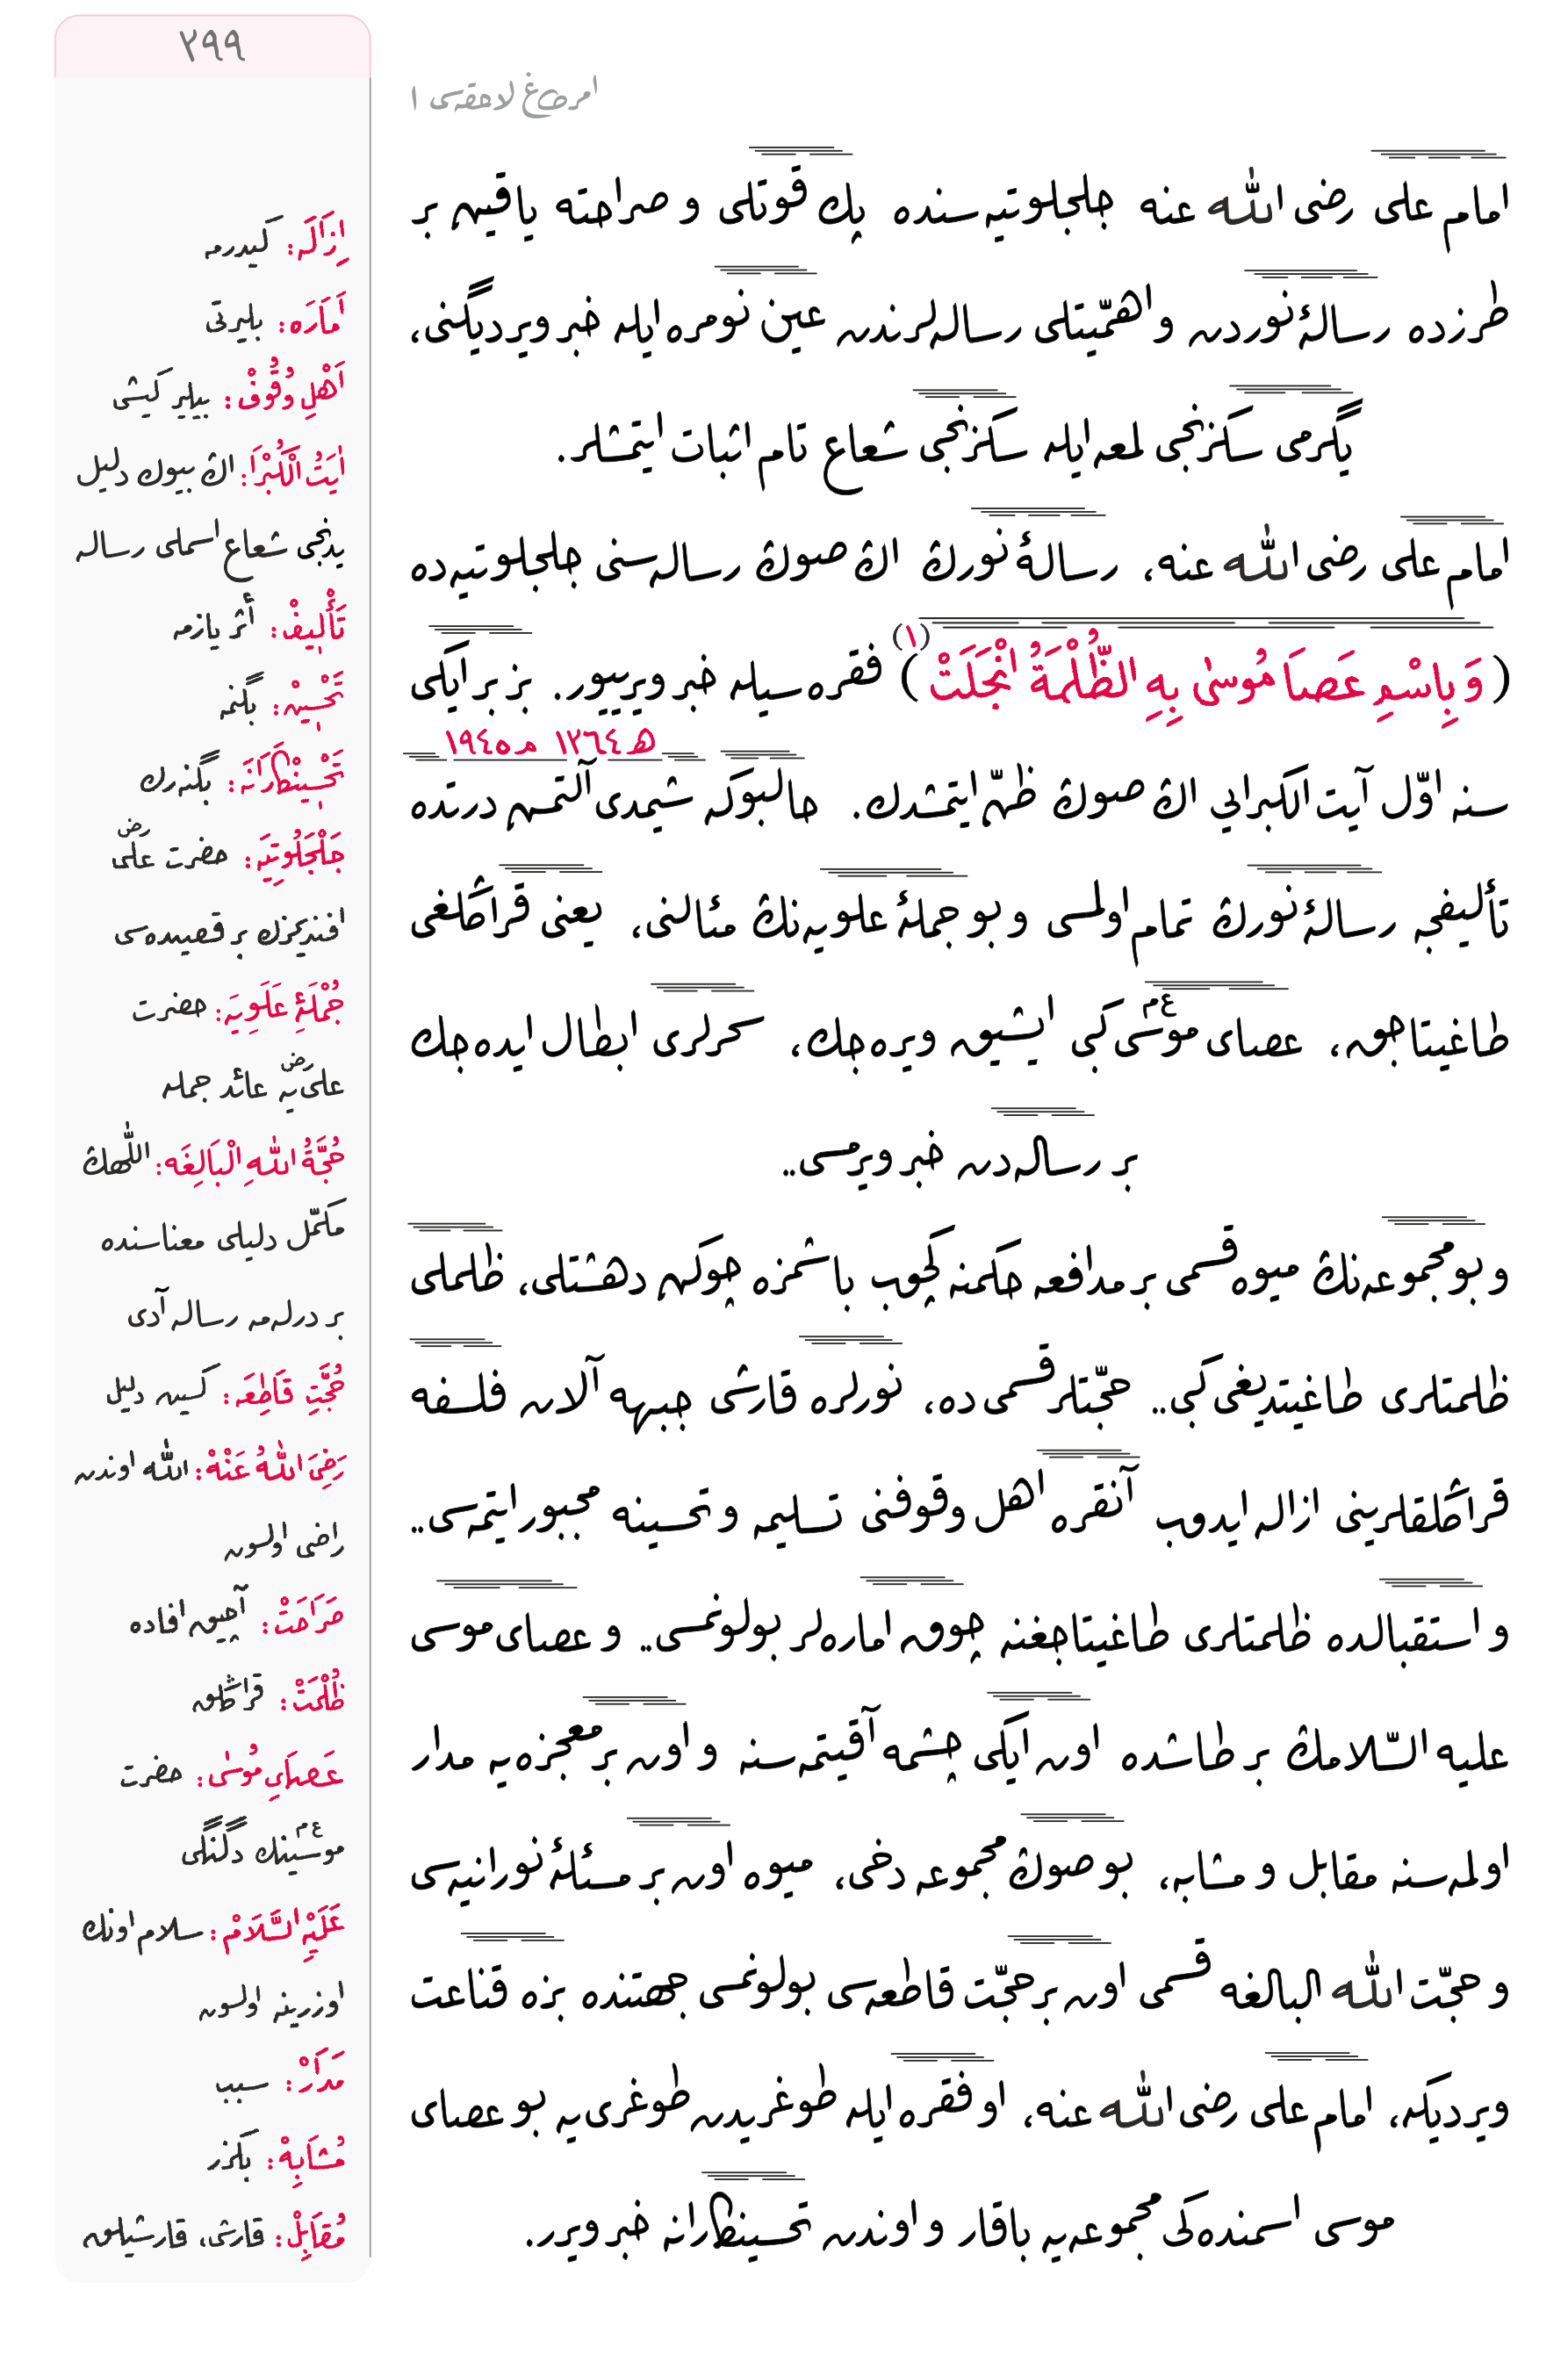 ٢٩٩
امرطاغ لاحقه‌سی ١
امام علی رضی الله عنه جلجلوتیه‌سنده پك قوتلی و صراحته یاقین بر
طرزده رسالۀ نوردن و اهمّیتلی رساله‌لرندن عین نومره ایله خبر ویردیگنی،
یگرمی سکزنجی لمعه ایله سکزنجی شعاع تام اثبات ایتمشلر.
امام علی رضی الله عنه، رسالۀ نورڭ اڭ صوڭ رساله‌سنی جلجلوتیه‌ده
(وَ بِاسْمِ عَصَا مُوسٰى بِهِ الظُّلْمَةُ انْجَلَتْ) (١) فقره‌سیله خبر ویرییور. بز بر ایکی
ه‍ ١٣٦٤ م ١٩٤٥
سنه اوّل آیت الکبرایی اڭ صوڭ ظنّ ایتمشدك. حالبوکه شیمدی آلتمش درتده
تألیفجه رسالۀ نورڭ تمام اولمسی و بو جملۀ علویه‌نڭ مئالنی، یعنی قراڭلغی
طاغیتاجق، عصای موسی ع‌م کبی ایشیق ویره‌جك، سحرلری ابطال ایده‌جك
بر رساله‌دن خبر ویرمسی..
و بو مجموعه‌نڭ میوه قسمی بر مدافعه حکمنه کچوب باشمزه چوکن دهشتلی، ظلملی
ظلمتلری طاغیتدیغی کبی.. حجّتلر قسمی ده، نورلره قارشی جبهه آلان فلسفه
قراڭلقلرینی ازاله ایدوب آنقره اهل وقوفنی تسلیمه و تحسینه مجبور ایتمه‌سی..
و استقبالده ظلمتلری طاغیتاجغنه چوق اماره‌لر بولونمسی.. و عصای موسی
علیه السّلامڭ بر طاشده اون ایکی چشمه آقیتمه‌سنه و اون بر معجزه‌یه مدار
اولمه‌سنه مقابل و مشابه، بو صوڭ مجموعه دخی، میوه اون بر مسئلۀ نورانیه‌سی
و حجّت الله البالغه قسمی اون بر حجّت قاطعه‌سی بولونمسی جهتنده بزه قناعت
ویردیکه، امام علی رضی الله عنه، او فقره ایله طوغریدن طوغری‌یه بو عصای
موسی اسمنده‌کی مجموعه‌یه باقار و اوندن تحسینکارانه خبر ویرر.
اِزَالَه: کیدرمه
اَمَارَه: بلیرتی
اَهْلِ وُقُوفْ: بیلیر کیشی
اٰیَتُ الْكُبْرَا: اڭ بیوك دلیل
یدنجی شعاع اسملی رساله
تَأْلِیفْ: أثر یازمه
تَحْسِینْ: بگنمه
تَحْسِینْكَارَانَه: بگنه‌رك
جَلْجَلُوتِیَه: حضرت علی رض
افندیمزڭ بر قصیده‌سی
جُمْلَۀِ عَلَوِیَه: حضرت
علی رض‌یه عائد جمله
حُجَّةُ اللهِ الْبَالِغَه: اللّٰهڭ
مکمّل دلیلی معناسنده
بر درلمه رساله آدی
حُجَّتِ قَاطِعَه: کسین دلیل
رَضِیَ اللهُ عَنْهْ: الله اوندن
راضی اولسون
صَرَاحَتْ: آچیق افاده
ظُلْمَتْ: قراڭلق
عَصَایِ مُوسٰى: حضرت
موسینڭ ع‌م دگنگی
عَلَیْهِ السَّلَامْ: سلام اونڭ
اوزرینه اولسون
مَدَارْ: سبب
مُشَابِهْ: بڭزر
مُقَابِلْ: قارشی، قارشیلق